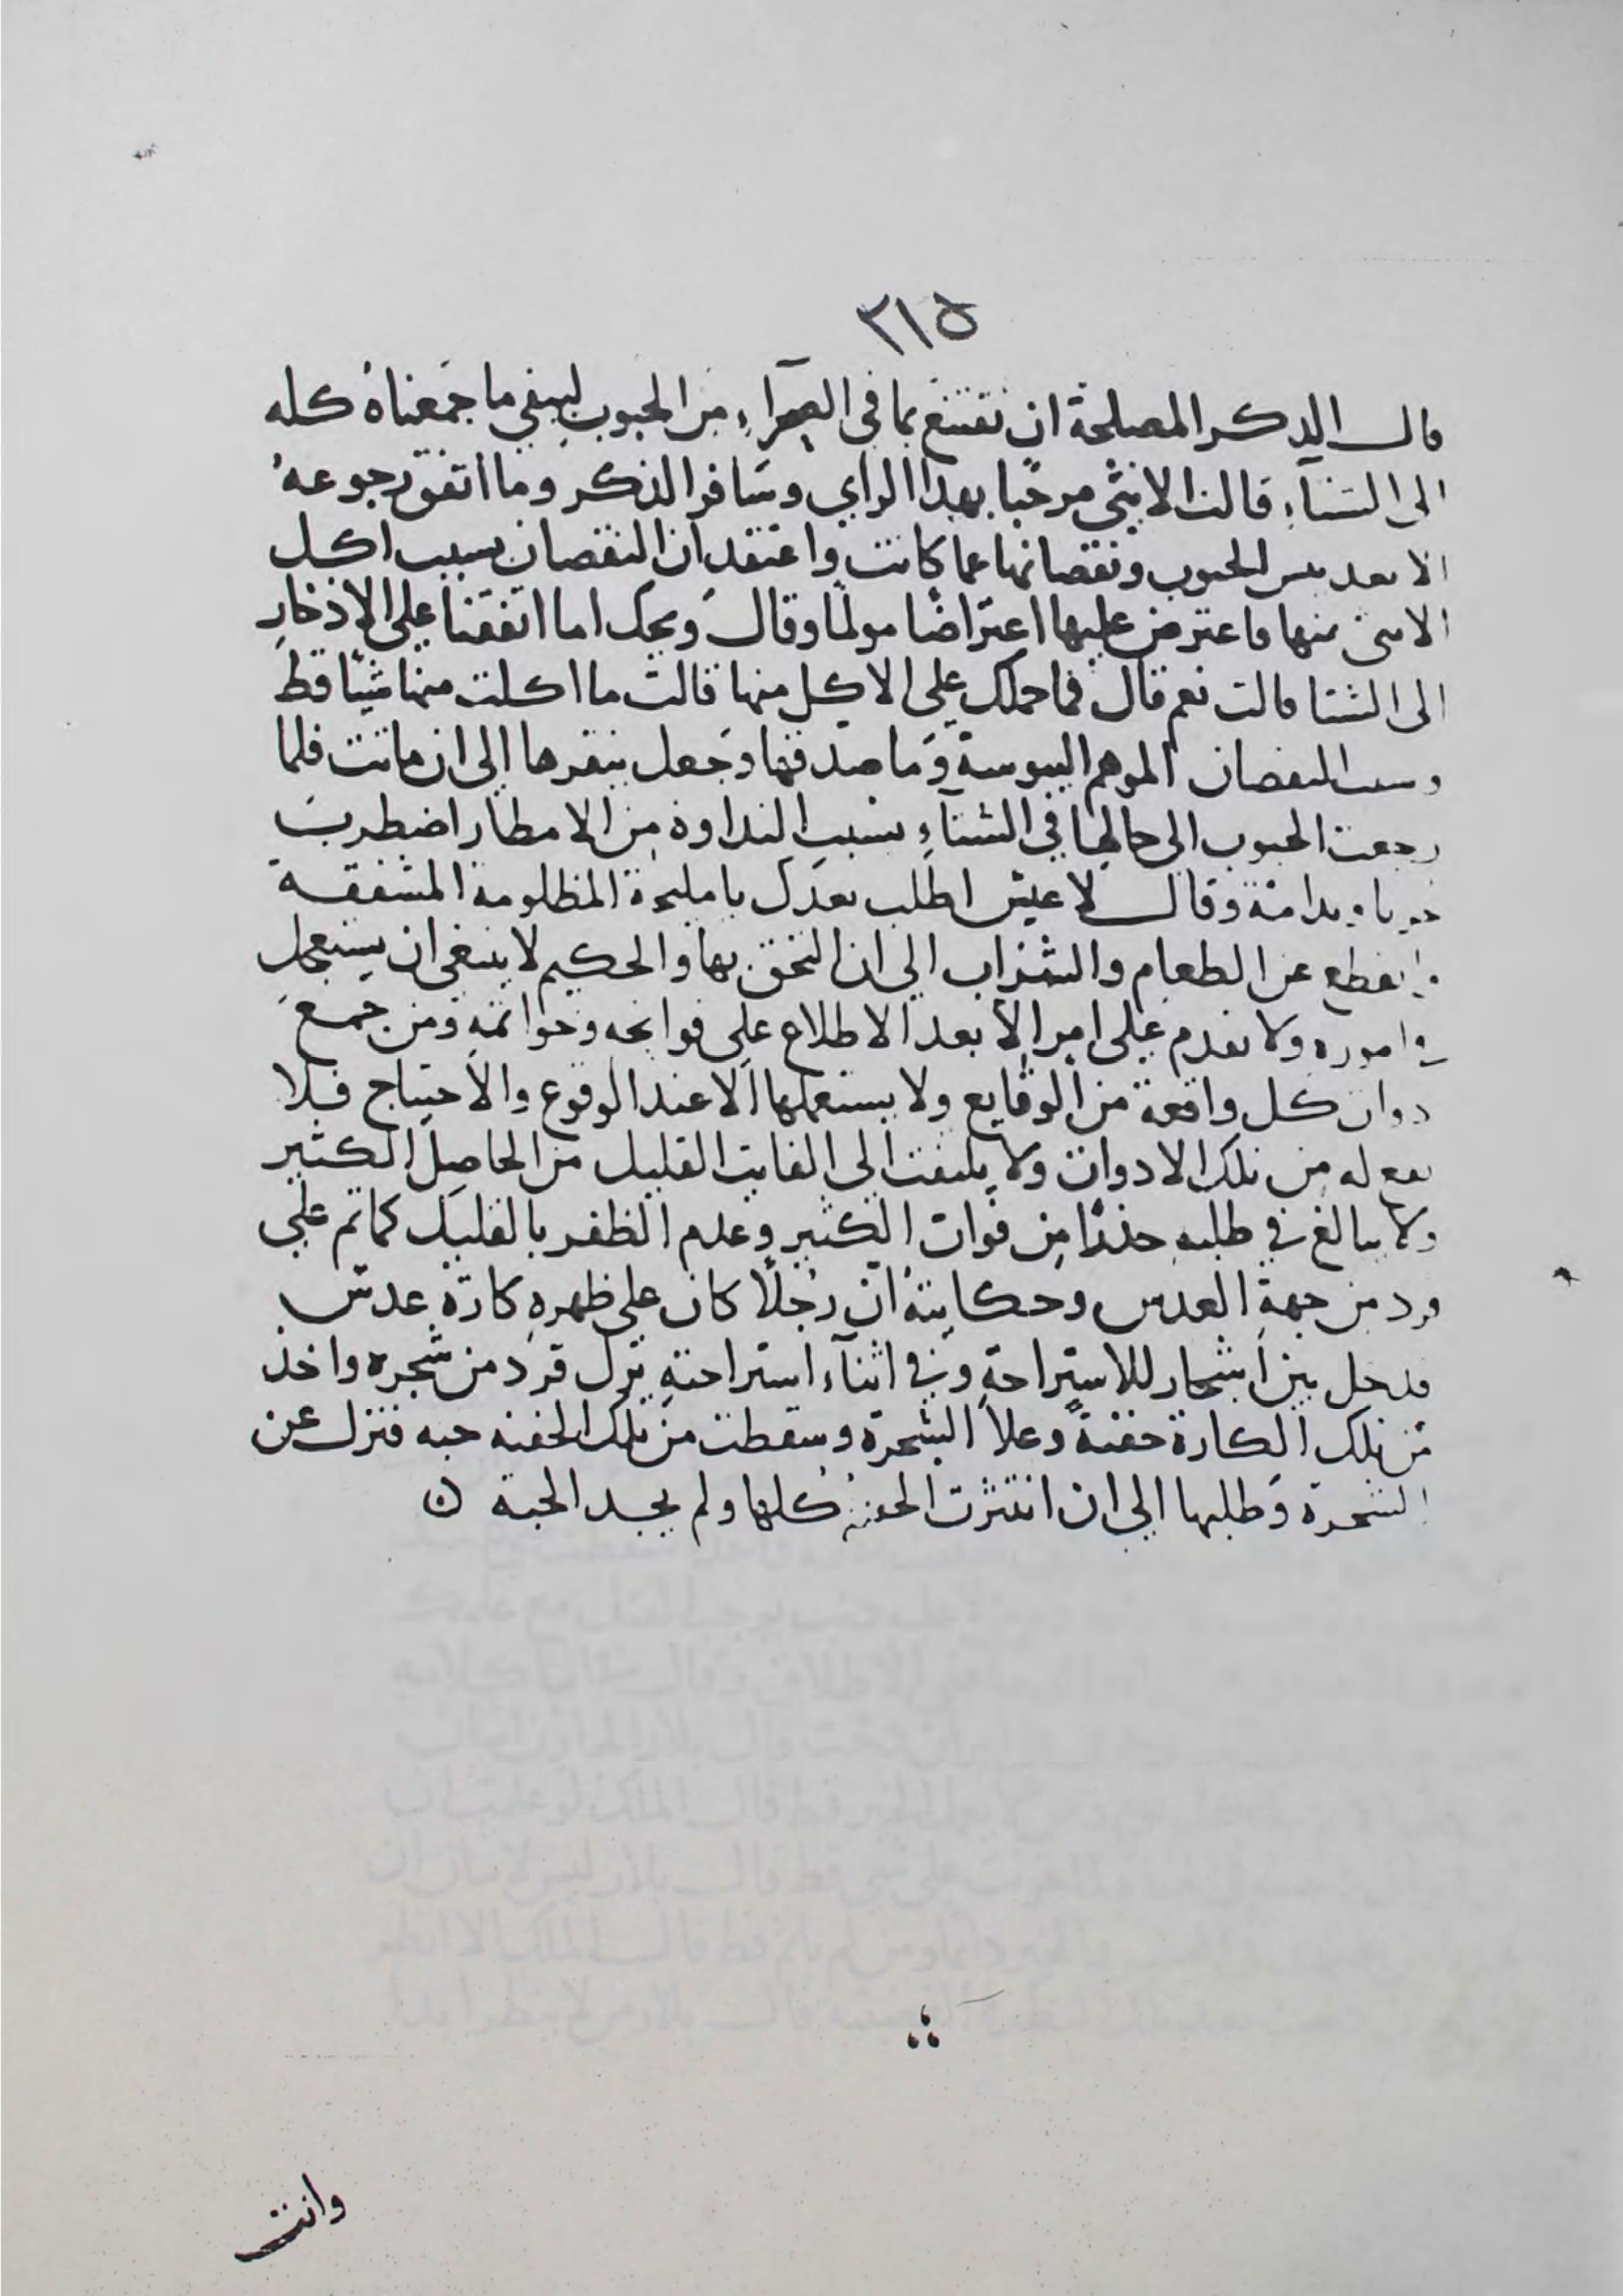 ٣١٥
قال الذكر المصلحة ان نقتنع بما في الصحراء من الحبوب ليبقي ما جمعناه كله
الى الشتآء قالت الانثي مرحبا بهذا الراي وسافر الذكر وما اتفق رجوعه
الا بعد يبس الحبوب ونقصانها عما كانت واعتقد ان النقصان بسبب اكل
الانثى منها فاعترض عليها اعتراضا مولما وقال ويحك اما اتفقنا على الادخار
الى الشتا قالت نعم قال فما حملك علي الاكل منها قالت ما اكلت منها شيئا قط
وسبب النقصان الموهم اليبوسة وما صدقها وجعل ينقرها الى ان ماتت فلما
رجعت الحبوب الى حالها في الشتآء بسبب النداوة من الامطار اضطربت
وندامة وقال لا عيش اطلب بعدك يا مليحة المظلومة المشفقة
وانقطع عن الطعام والشراب الي ان التحق بها والحكيم لا ينبغى ان يستعجل
في اموره ولا يقدم علي امر الا بعد الاطلاع علي فواتحه وخواتمه ومن جمع
دوات كل واقعة من الوقايع ولا يستعملها الا عند الوقوع والاحتياج فلا
نفع له من تلك الادوات ولا يلتفت الى الفايت القليل من الحاصل الكثير
ولا يبالغ في طلبه حذرا من فوات الكثير وعدم الظفر بالقليل كما تم علي
قرد من جهة العدس وحكايته ان رجلا كان على ظهره كارة عدس
فدخل بين اشجار للاستراحة وفي اثنآء استراحته نزل قرد من شجرة واخذ
من تلك الكارة حفنة وعلا الشجرة وسقطت من تلك الحفنه حبه فنزل عن
الشجرة وطلبها الي ان انتثرت الحفنة كلها ولم يجد الحبة
وانت